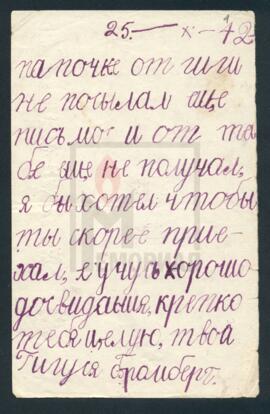 25.— x —42
папочке от гиги
не посылал еще
письмо и от те
бе ещ не получал,
я бы хотел чтобы
ты скорее прие-
хал, я учусь хорошо
досвидания, крепко
тебя целую, твоя
Гигуля Бромберг.
МЕМОРИАЛ